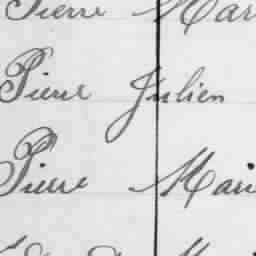 Pierre Mar
Pierre Julien
Pierre Mari